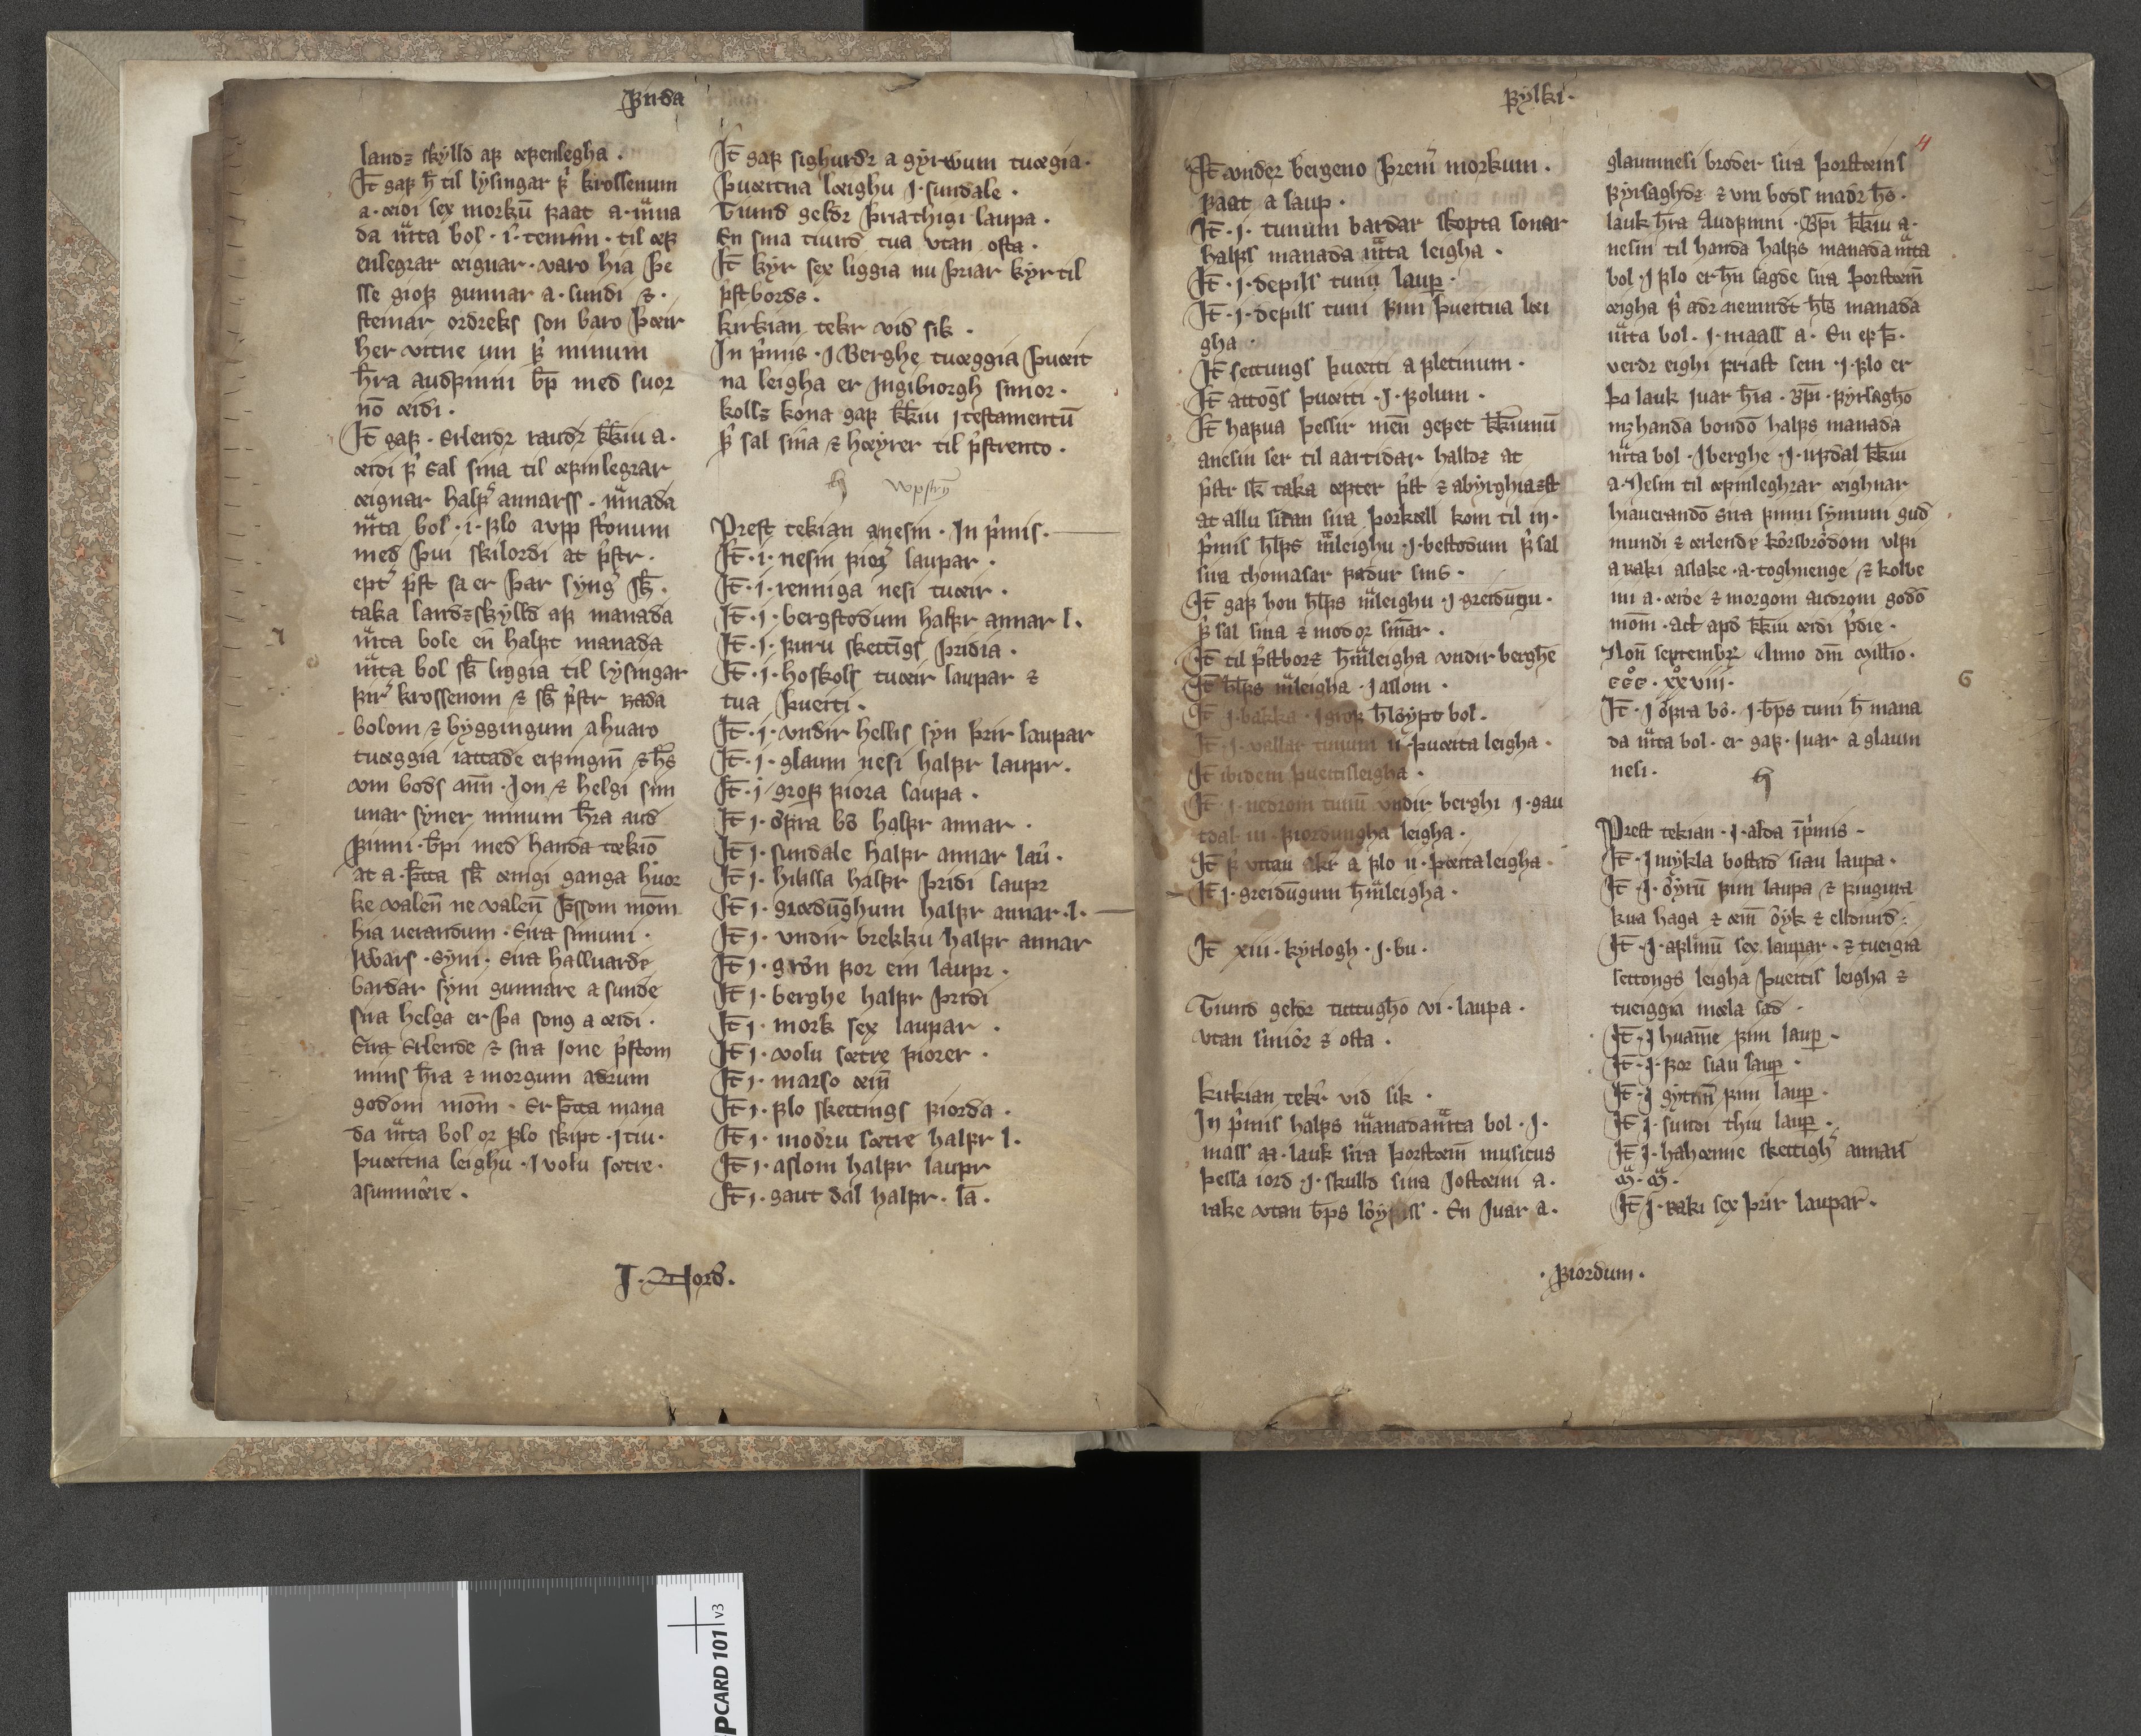 Firda
landz skylld af œfenlegha.
It̅ gaf h̅ til lysingar f̕ krossenum
a. œidi sex morkū faat a. mana
da mata bol. i. temini. til œf
enlegrar œignar. varo hia þe
sse giof gunnar a. sundi ⁊.
steinar ordreks son baro þœir
her vitne um f̕ minum
h̅ra audfinni b̅p med suor
nō œidi.
It̅ gaf. Erlendr raudr kk̅iu a.
œidi f̕ sal sina til œfinlegrar
œignar half annarss. manada
mata bol. i. flo vpp stonum
med þui skilordi at p̕str.
ept̕ p̕st sa er þar syng̕ sk̅.
taka landzskylld af manada
mata bole en halft manada
mata bol sk̅ liggia til lysingar
fur̕ krossenom ⁊ sk̅ p̕str rada
bolom ⁊ byggingum ahuaro
tuœggia iattade erfingin̅ ⁊ h̅s
vm bods man̅. Jon ⁊ helgi sun
unar syner minum h̅ra aud
finni. b̅pi med handa tœkiō
at a. þ̅tta sk̅ œingi ganga huor
ke valen̅ ne valen̅ þ̅ssom mōm
hia uerandum. sira simuni.
Iwars. syni. sira halluarde
bardar syni gunnare a sunde
sira helga er þa song a œidi.
sira Erlende ⁊ sira ione p̕stom
mins h̅ra ⁊ morgum adrum
godom mōm. Er þ̅tta mana
da mata bol or flo skipt. i tiu.
þuœitna leighu. i volu sœtre.
asunmœre.
It̅ gaf sighurdr a gyrwum tuœgia.
þuœitna lœighu i. sundale.
Tiund geldr þriathigi laupa.
En sina tiund tua vtan osta.
It̅ kyr sex liggia nu þriar kyr til
p̕stbords.
kirkian tekr vid sik.
In p̕mis. i Berghe tuœggia þuœit
na leigha er Ingibiorgh simor.
kollz kona gaf kk̅iu i testamentū
f̕ sal sina ⁊ hœyrer til p̕strento.
Prest tekian anesiu. In p̕mis.
It̅. i. nesiu fior̕ laupar.
It̅. i. renniga nesi tuœir.
It̅. i. bergstodum halfr annar l.
It̅. i. furu skettīgs þridia.
It̅. i. hoskols tuœir laupar ⁊
tua þueiti.
It̅. i. vndir hellis syn þrir laupar
It̅. i. glaum nesi halfr laupr.
It̅. i. grof fiora laupa.
It̅ i. ofra bō halfr annar.
It̅ i. sundale halfr annar lau̅.
It̅ i. hiulla halfr þridi laupr
It̅ i. grœdūghum halfr annar. l.
It̅ i. vndir brekku halfr annar
It̅ i. gron for ein laupr.
It̅ i. berghe halfr þridi
It̅ i. mork sex laupar.
It̅ i. volu sœtre fiorer.
It̅ i. marso œin̅
It̅ i. flo skettings fiorda.
It̅ i. modru sœtre halfr l.
It̅ i. aslom halfr laupr
It̅ i. gaut dal halfr. la̅.
I. Nord.
fylki.
4
It̅ vnder bergeno þrem̕ morkum.
faat a laup.
It̅. i. tunum bardar skopta sonar
halfs manada mata leigha.
It̅. i. depils tunū laup.
It̅. i. depils tuni fim þueitna lœi
gha.
It̅ settungs þuœiti a fletinum.
It̅ attōgs þuœiti. i. folum.
It̅ hafua þessir men̅ gefet kk̅iunū
anesiu ser til aartidar halldz at
p̕str sk̅ taka œpter p̕st ⁊ abyrghiazst
at allu sidan sira þorkœll kom til in.
p̕mis h̅lfs mleighu. i. bestodum f̕ sal
sira thomasar fadur sins.
It̅ gaf hon h̅lfs mleighu. i. greidūgu.
f̕ sal sina ⁊ modor sin̅ar.
It̅ til p̕stbordz h̅mleigha vndir berghē
It̅ h̅lfs mleigha. i aslom.
It̅ i. bakka. i grof h̅lsyft bol.
It̅. i. vallar tunum ii þuœita leigha.
It̅ ibidem þueitisleigha.
It̅. i. nedrom tunū vndir berghi i. gau
tdal. iii. fiordungha leigha.
It̅ f̕ vttan akr a flo ii. þœita leigha.
It̅ i. greidūgum h̅mleigha.
It̅ xiii. kyrlogh. i. bu.
Tiund geldr tuttughō vi. laupa.
vtan siniōr ⁊ osta.
kirkian tekr vid sik.
In p̕mis halfs manadamata bol. i.
mass aa. lauk sira þorstœin̅ musicus
þessa iord. i. skulld sina Iostœini a.
rake vtan b̅ps lōyfiss. En Iuar a.
glaumnesi broder sira þorstœins
fyrsaghdz ⁊ vm bods madr h̅ō.
lauk h̅ra Audfinni. B̅pi kk̅iu a.
nesiu til handa halfs manada mata
bol. i flo er h̅n sagde sira þorstœin̅
œigha f̕ adr nemndt h̅ls manada
mata bol. i. maass a. En ef þ̅.
verdr eighi friast sem. i. flo er
þa lauk iuar h̅ra. B̅pi. fyrsaghō
mz handa bondō halfs manada
mata bol. i berghe. i. updal kk̅iu
a. Nesiu til œfinleghrar œighnar
hiauerandō sira finni symuni gud
mundi ⁊ œrlendr korsbrōdom vlfi
a raki aslake. a. toghnenge ⁊ kolbe
ini a. œide ⁊ morgom androm godō
mōm. act̅ apd̅ kk̅iu œidi p̕die.
Non̅ septembr̕ Anno dm̅ millio.
ccc̊. xx̊viii.
6
It̅. i ofra bō. i. b̅ps tuni h̅ mana
da mata bol. er gaf. iuar a glaum
nesi.
Prest tekian. i. alda īp̕mis.
It̅. i mykla bostad siau laupa.
It̅. i. ōyrū fim laupa ⁊ fiugura
kua haga ⁊ œin̅ ōyk ⁊ elldiuid.
It̅. i. aflinū sex laupar. ⁊ tueigia
settongs leigha þueitis leigha ⁊
tueiggia mœla sad.
It̅. i huam̅e fim laup.
It̅. i. for siau laup.
It̅. i gytini fim laup.
It̅ i. sundi thiu laup.
It̅ i. hahœime skettigh̕ annars
It̅ i. raki sex þrir laupar.
. fiordum.